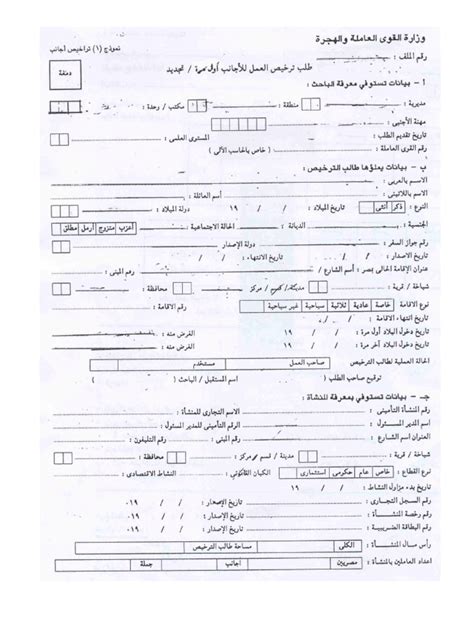 وزارة القوى العاملة والهجرة
نموذج (١) تراخيص أجانب
رقم الملف :
طلب ترخيص العمل للأجانب أول مرة / تجديد
دمغة
أ - بيانات تستوفي معرفة الباحث :
مديرية : منطقة : مكتب / وحدة :
مهنة الأجنبي :
تاريخ تقديم الطلب : المستوى العلمى :
رقم القوى العاملة : ( خاص بالحاسب الألى )
ب - بيانات يملؤها طالب الترخيص :
الاسم بالعربى :
الاسم باللاتينى : أسم العائلة :
النوع : ذكر أنثى تاريخ الميلاد : / / ١٩ دولة الميلاد :
الجنسية : الديانة : الحالة الاجتماعية : أعزب متزوج أرمل مطلق
رقم جواز السفر : دولة الإصدار :
تاريخ الاصدار : / / تاريخ الانتهاء : / /
عنوان الإقامة الحالى بمصر : أسم الشارع / رقم المبنى :
شياخة / قرية : مدينة / قسم / مركز محافظة :
نوع الاقامة : خاصة عادية ثلاثية سياحية غير سياحية
تاريخ انتهاء الاقامة : / / رقم الاقامة :
تاريخ دخول البلاد أول مرة : / / ١٩ الغرض منه :
تاريخ دخول البلاد آخر مرة : / / ١٩ الغرض منه :
الحالة العملية لطالب الترخيص صاحب العمل مستخدم
توقيع صاحب الطلب / اسم المستقبل / الباحث ( )
جـ - بيانات تستوفي بمعرفة المنشأة :
رقم المنشأة التأمينى : الاسم التجارى للمنشأة :
اسم المدير المسئول : الرقم التأمينى للمدير المسئول :
العنوان اسم الشارع : رقم المبنى : رقم التليفون :
شياخة / قرية : مدينة / قسم / مركز محافظة :
نوع القطاع : خاص عام حكومى استثمارى الكيان القانونى : النشاط الاقتصادى :
تاريخ بدء مزاولة النشاط : / / ١٩
رقم السجل التجارى : تاريخ الإصدار : / / ١٩
رقم رخصة المنشأة : تاريخ الإصدار : / / ١٩
رقم البطاقة الضريبية : تاريخ الإصدار : / / ١٩
رأس مال المنشأة : الكلى مساحة طالب الترخيص
أعداد العاملين بالمنشأة : مصريين أجانب جملة